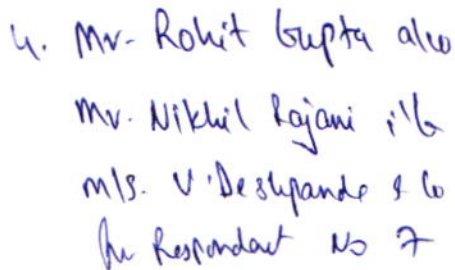 4. Mr. Rohit Gupta a/w
Mr. Nikhil Rajani i/b
M/s. V. Deshpande & Co
for Respondent No 7